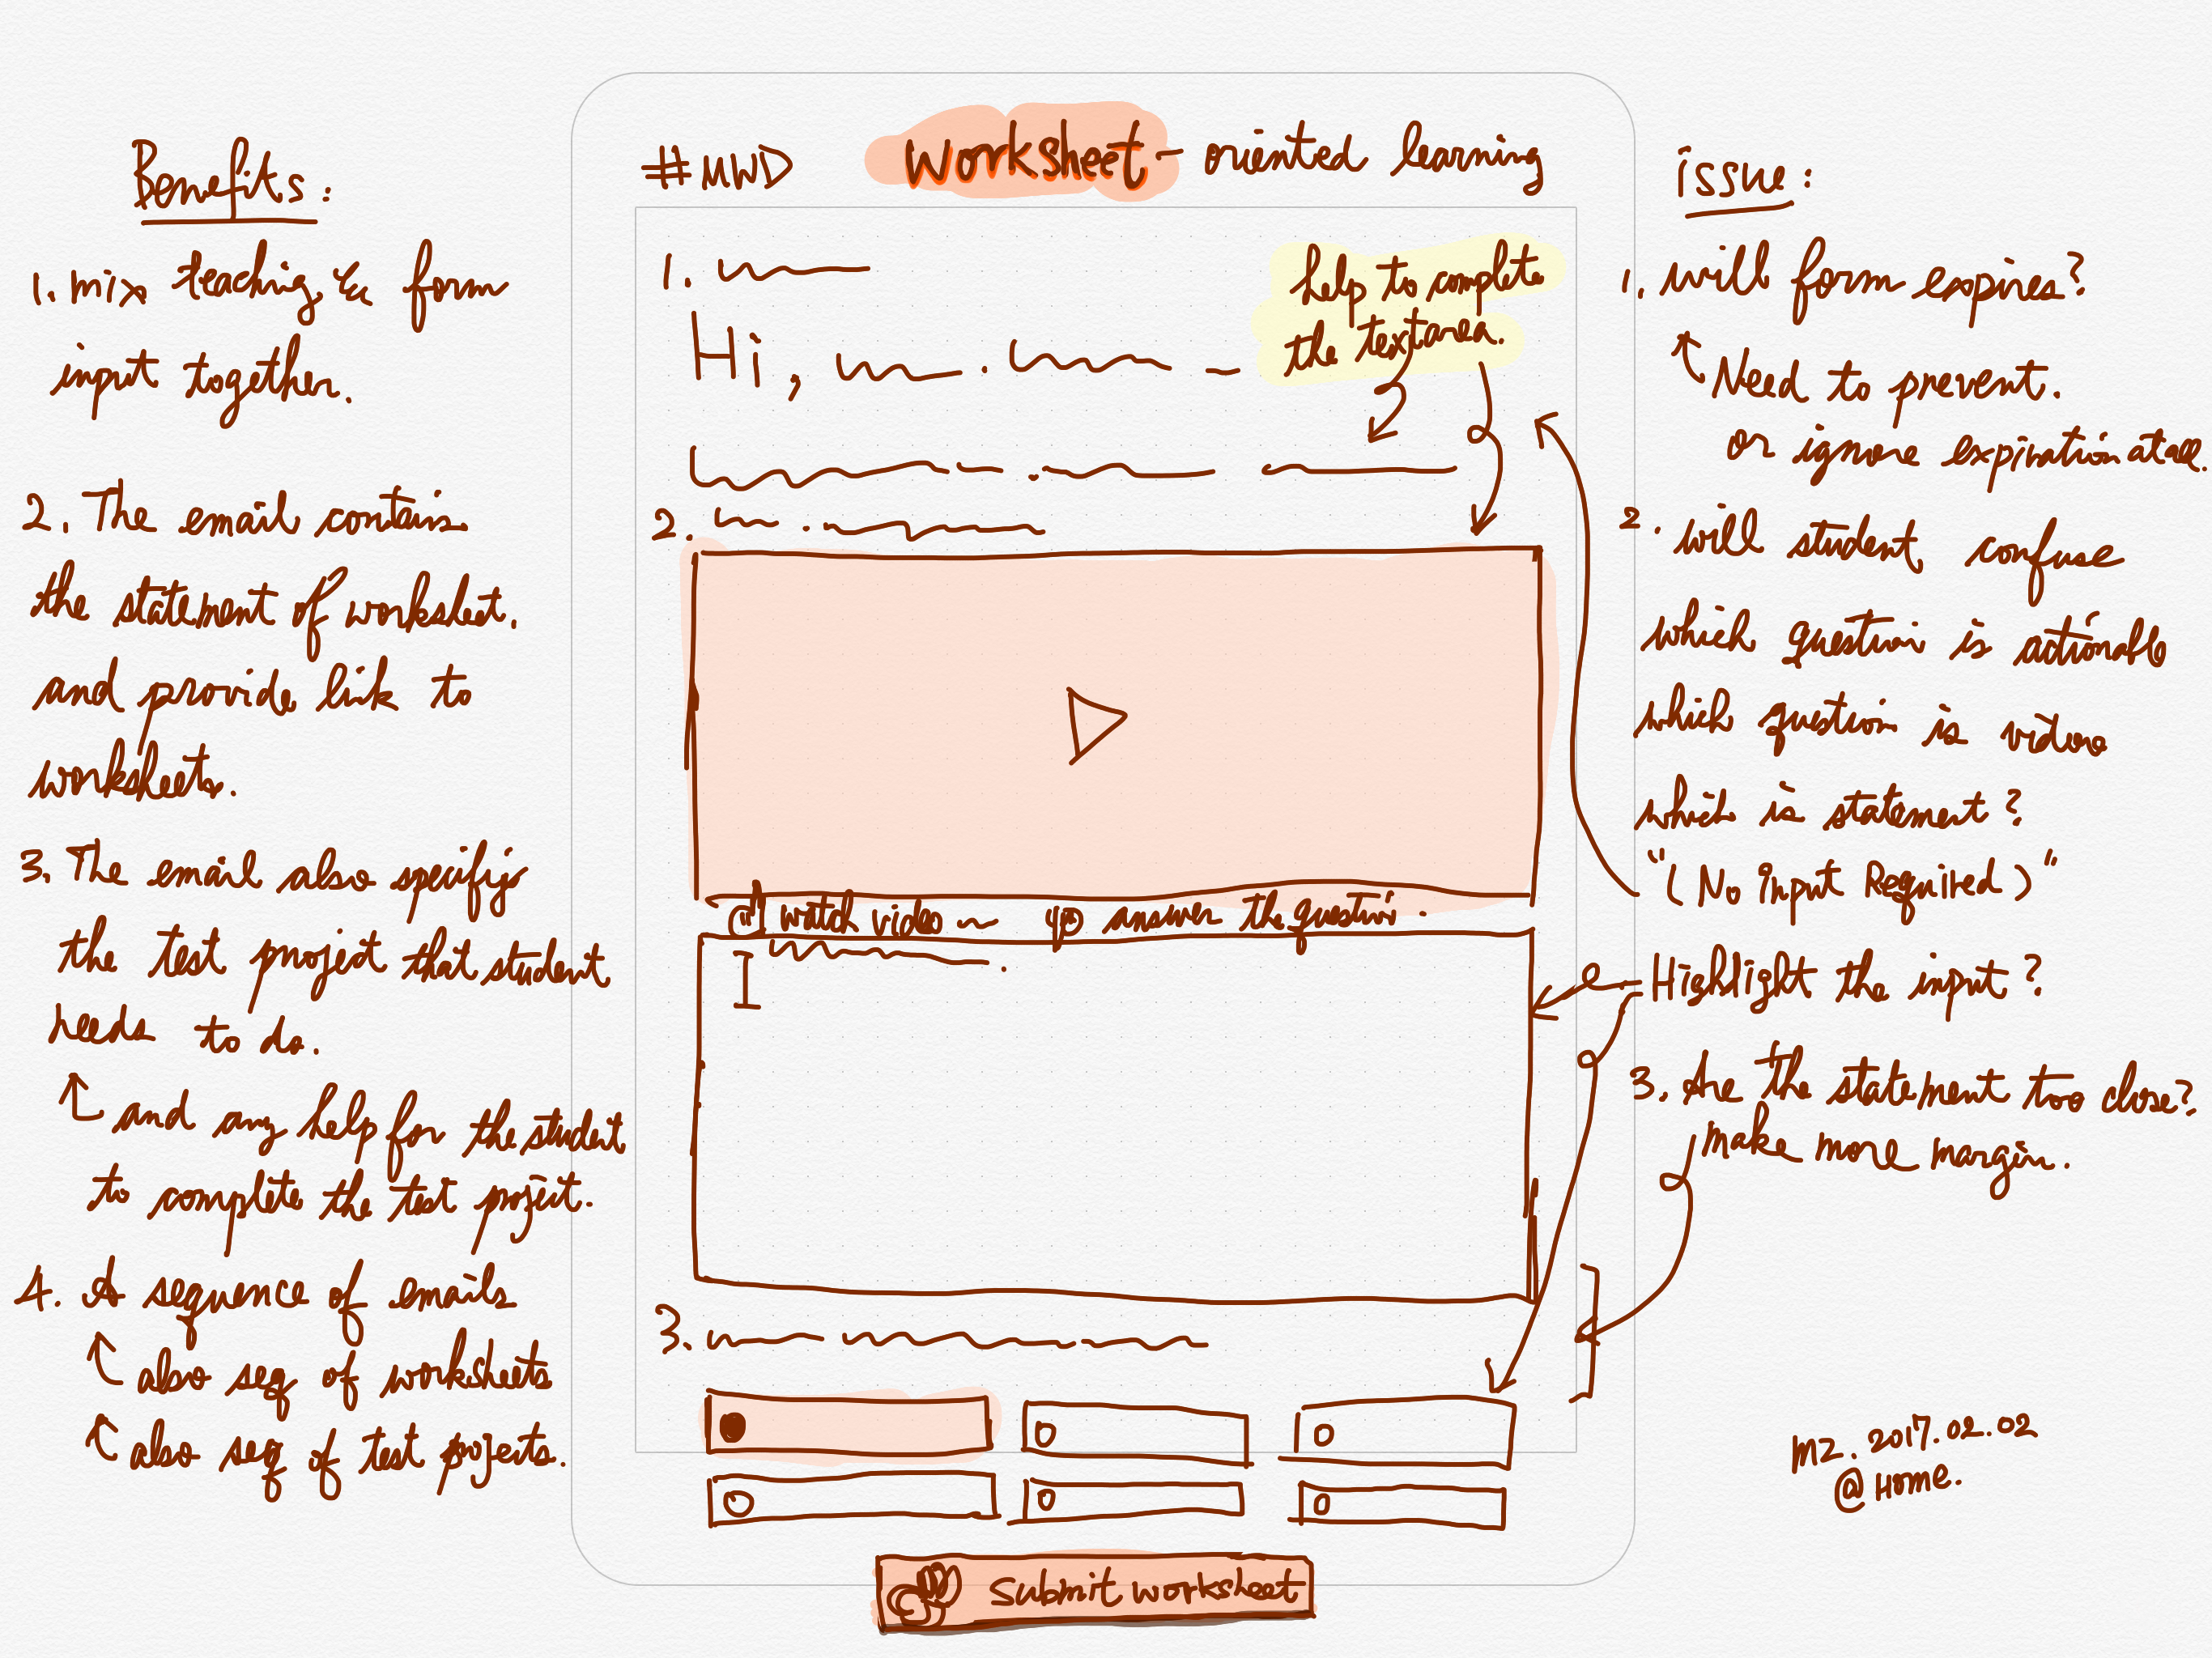 Benefits:
1. mix teaching & form
input together.
2. The email contains
the statement of worksheet.
and provide link to
worksheets.
3. The email also specifiy
the test project that student
needs to do.
and any help for the student
to complete the test project.
4. A sequence of emails
also seq of worksheets
also seq of test projects.
#MWD worksheet-oriented learning
1.
Hi,
help to complete
the textarea.
2.
watch video answer the question.
I
3.
Submit worksheet
issue:
1. will form expires?
Need to prevent.
or ignore expiration at all.
2. will student confuse
which question is actionable
which question is video
which is statement?
"(No input Required)"
Highlight the input?
3. Are the statement too close?
make more margin.
MZ. 2017.02.02
@Home.